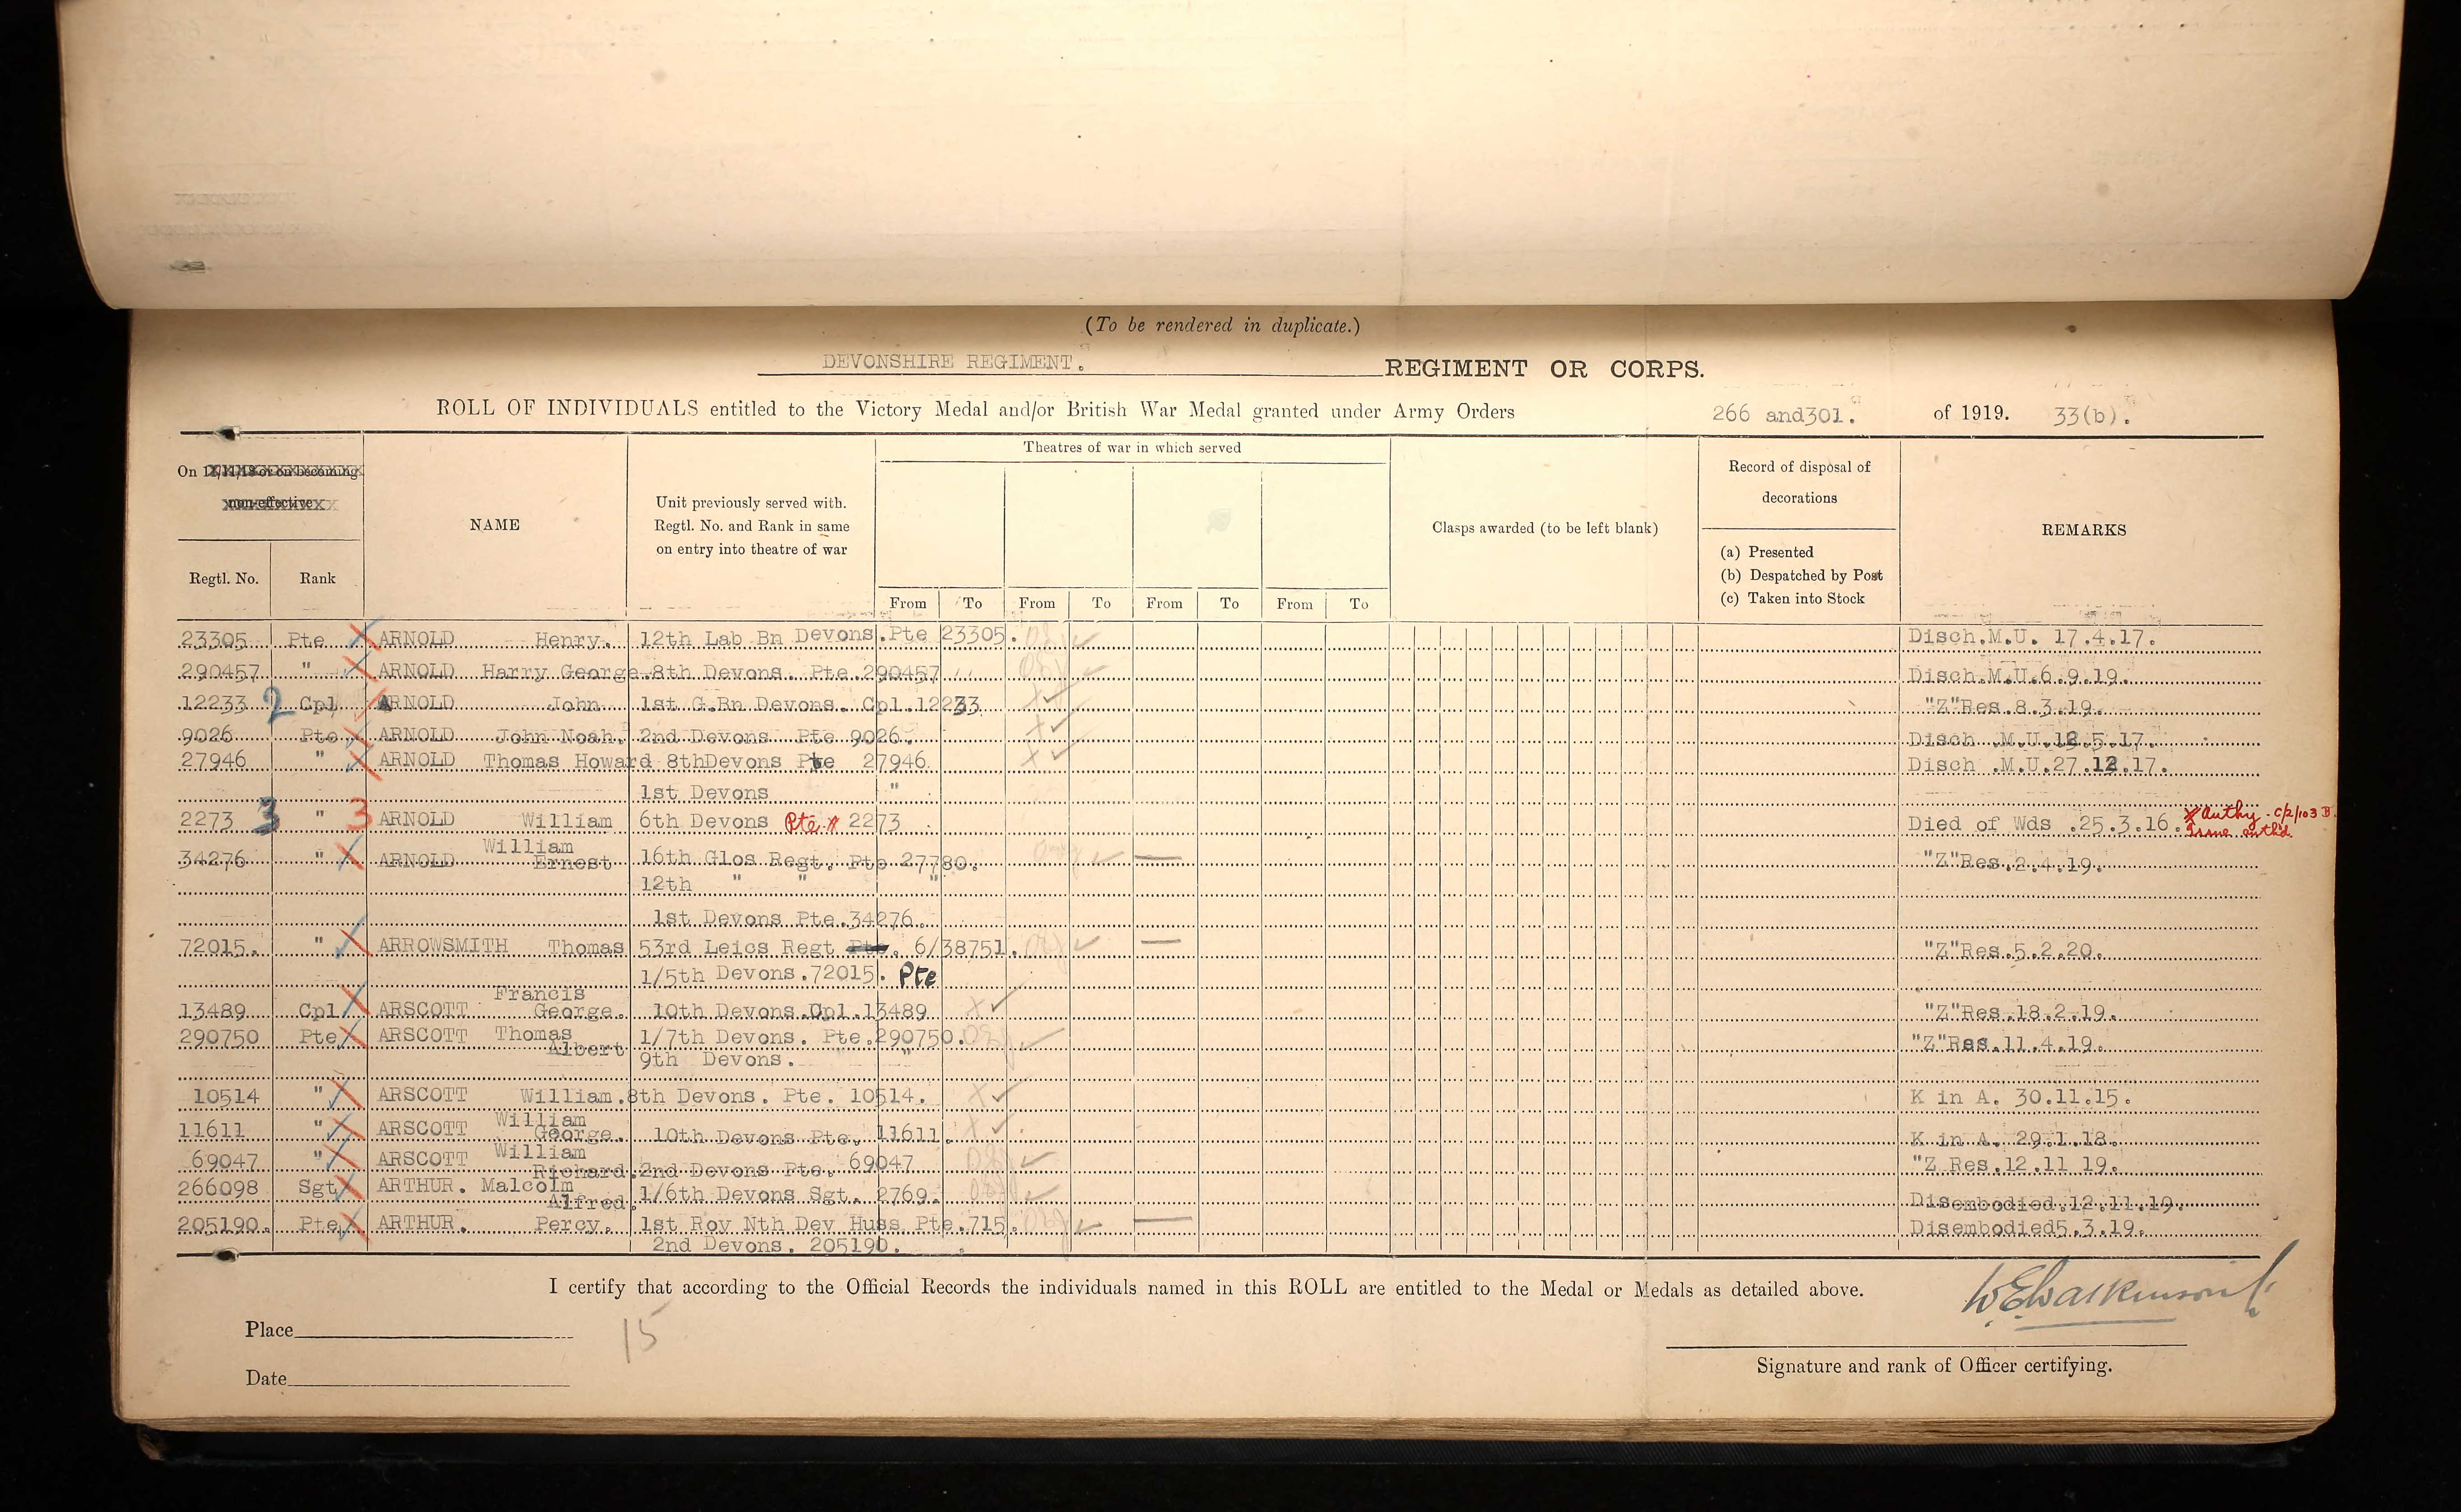 (To be rendered in duplicate.)
DEVONSHIRE REGIMENT. REGIMENT OR CORPS.
ROLL OF INDIVIDUALS entitled to the Victory Medal and/or British War Medal granted under Army Orders 266 and301. of 1919. 33(b).
On 11/11/18 or on becoming non-effective
Regtl. No. Rank
NAME
Unit previously served with.
Regtl. No. and Rank in same
on entry into theatre of war
Theatres of war in which served
From To From To From To From To
Clasps awarded (to be left blank)
Record of disposal of
decorations
(a) Presented
(b) Despatched by Post
(c) Taken into Stock
REMARKS
23305 Pte ARNOLD Henry. 12th Lab Bn Devons.Pte 23305. Disch.M.U. 17.4.17.
290457 " ARNOLD Harry George.8th Devons. Pte.290457 Disch.M.U.6.9.19.
12233 2 Cpl ARNOLD John 1st G.Bn Devons. Cpl.12233 "Z"Res.8.3.19.
9026 Pte ARNOLD John Noah. 2nd Devons Pte 9026. Disch .M.U.12.5.17.
27946 " ARNOLD Thomas Howard 8thDevons Pte 27946 Disch .M.U.27.12.17.
1st Devons "
2273 3 " 3 ARNOLD William 6th Devons Pte x 2273 Died of Wds .25.3.16. x Authy - C/2/103 B.
Issue auth'd
34276 " ARNOLD William
Ernest 16th Glos Regt. Pte 27780. "Z"Res.2.4.19.
12th " " "
1st Devons Pte.34276.
72015. " ARROWSMITH Thomas 53rd Leics Regt Pte. 6/38751. "Z"Res.5.2.20.
1/5th Devons.72015. Pte
13489 Cpl ARSCOTT Francis
George. 10th Devons.Cpl.13489 "Z"Res.18.2.19.
290750 Pte ARSCOTT Thomas
Albert 1/7th Devons. Pte.290750. "Z"Res.11.4.19.
9th Devons. "
10514 " ARSCOTT William.8th Devons. Pte. 10514. K in A. 30.11.15.
11611 " ARSCOTT William
George. 10th Devons Pte. 11611. K in A. 29.1.18.
69047 " ARSCOTT William
Richard.2nd Devons Pte. 69047 "Z Res.12.11 19.
266098 Sgt ARTHUR. Malcolm
Alfred. 1/6th Devons Sgt. 2769. Disembodied.12.11.19.
205190. Pte ARTHUR. Percy. 1st Roy Nth Dev Huss Pte.715. Disembodied5.3.19.
2nd Devons. 205190.
I certify that according to the Official Records the individuals named in this ROLL are entitled to the Medal or Medals as detailed above.
Place
15
Date
Signature and rank of Officer certifying.